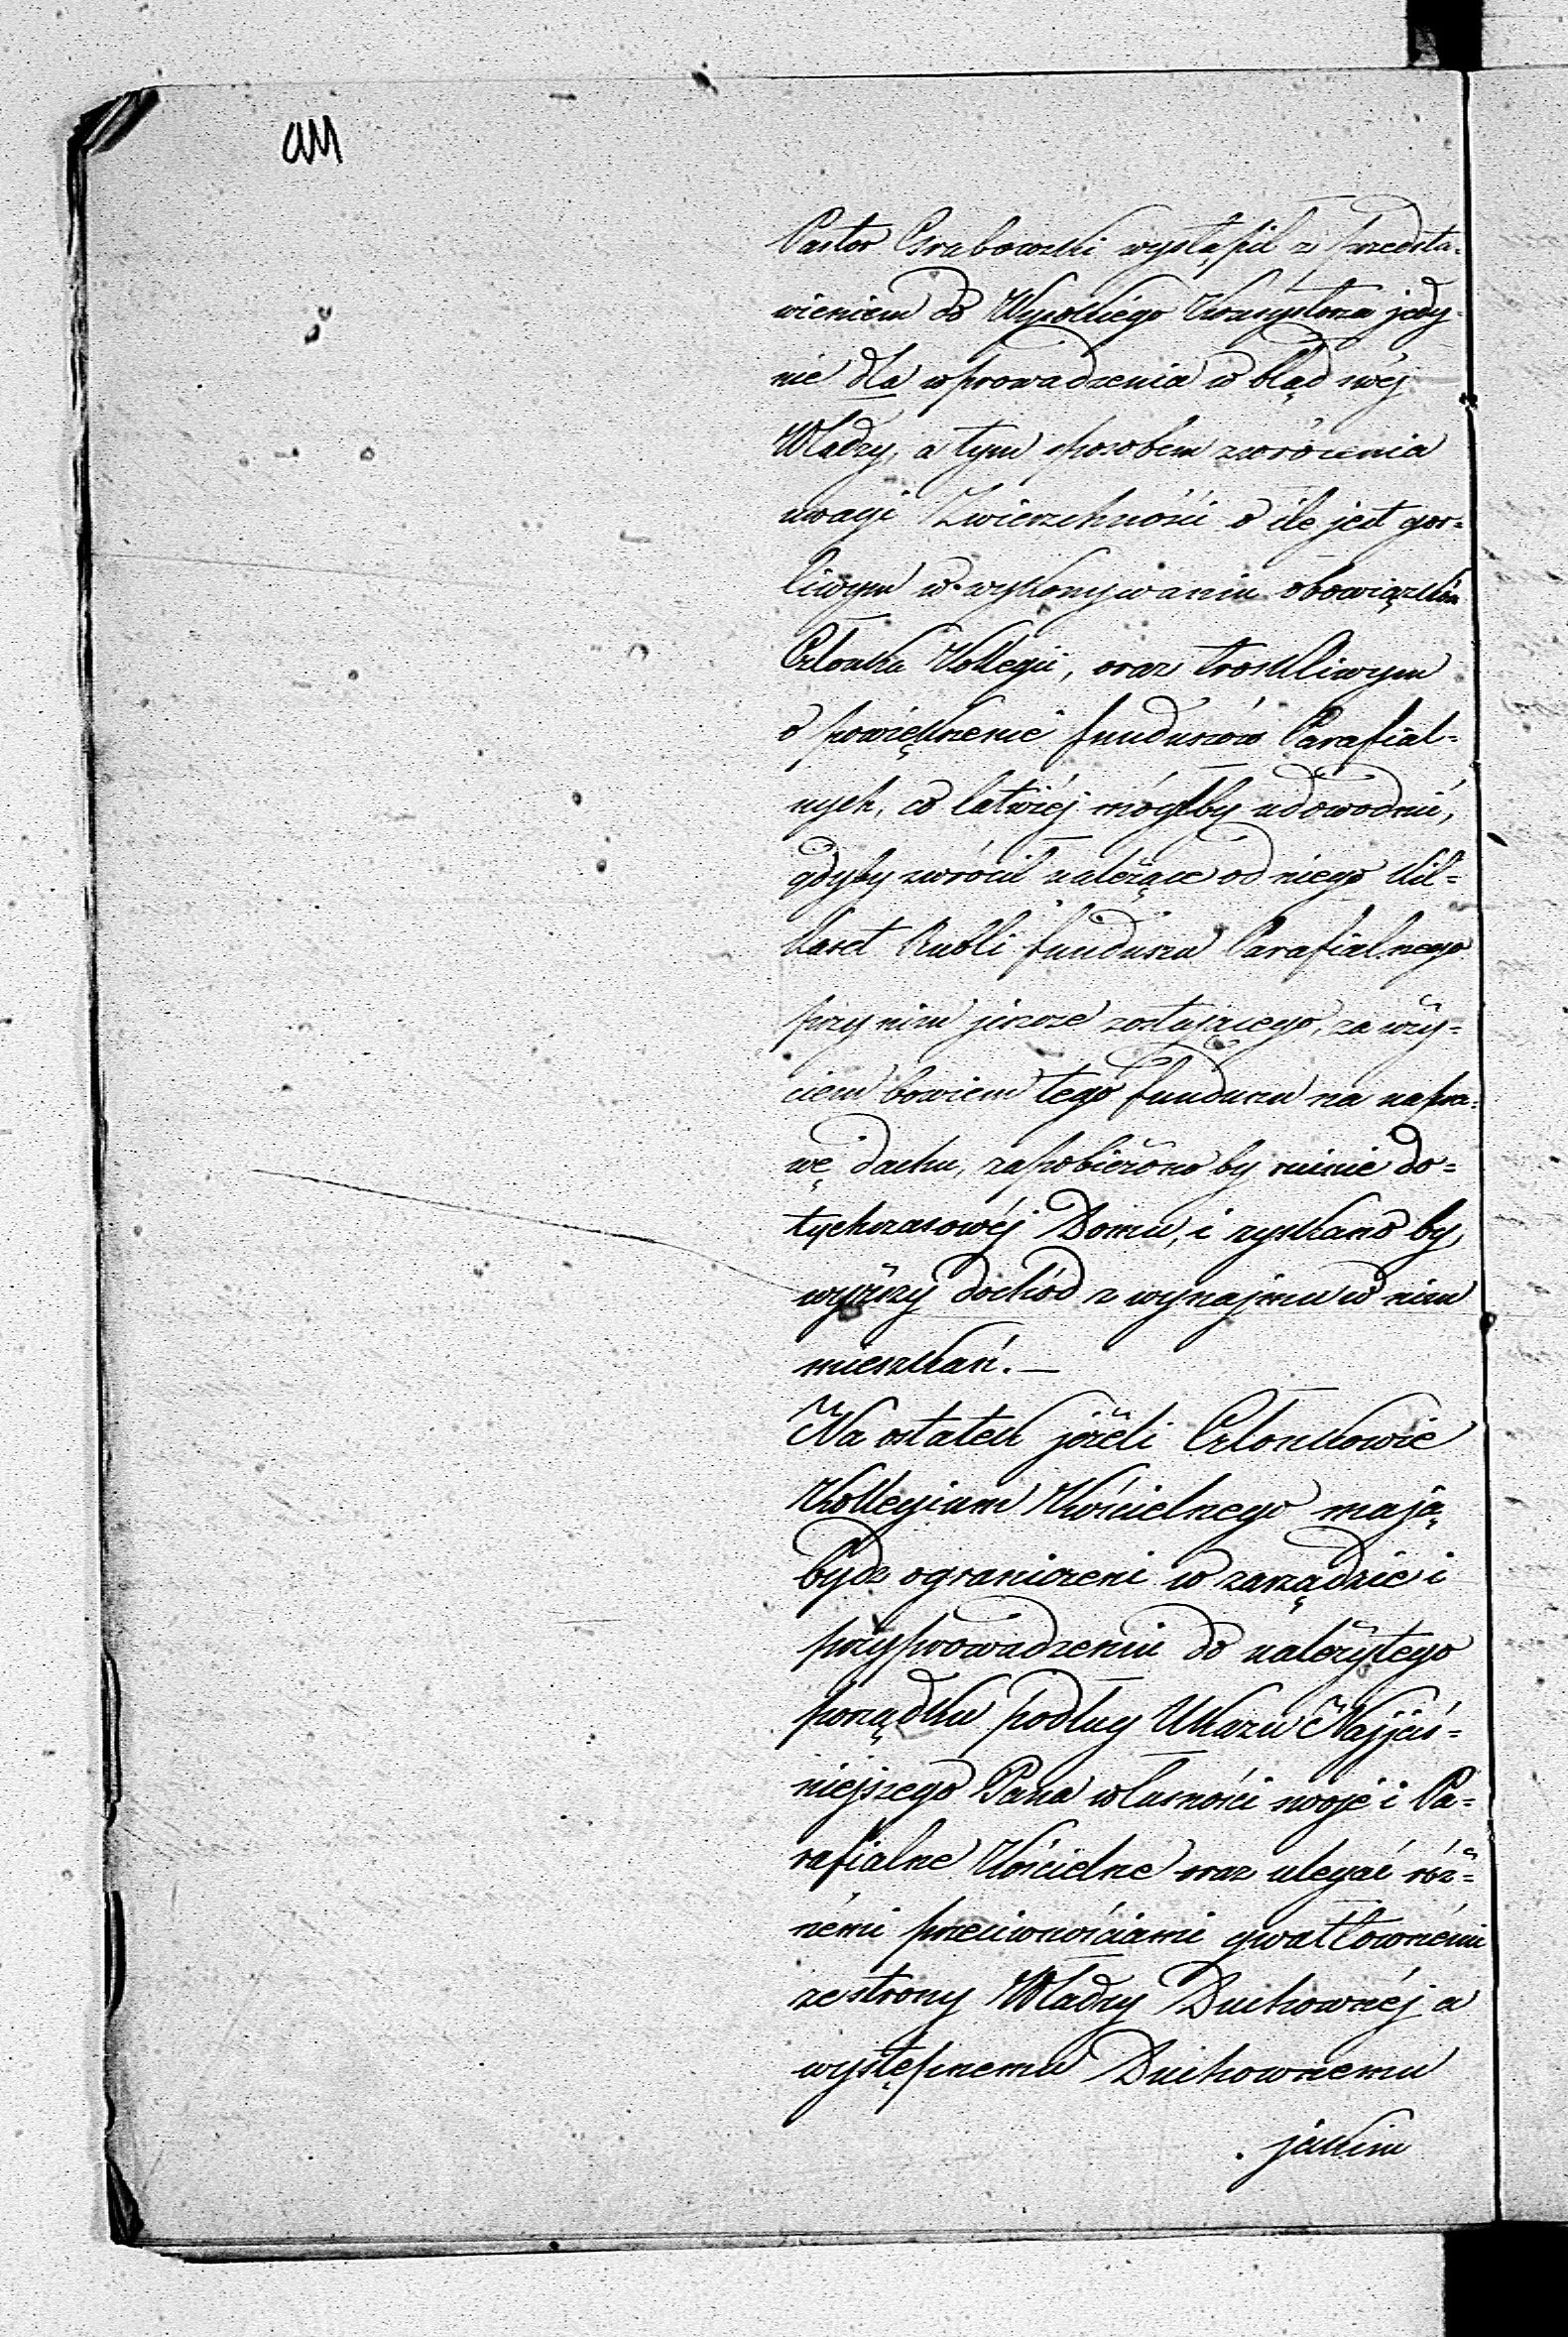 Pastor Grabowski wystąpił z przedsta-
wieniem do Wysokiego Konsystorza jedy-
nie dla wprowadzenia w błąd swéj
Władzy, a tym sposobem zwrócenia
uwagi Zwierzchności o ile jest gor-
liwym w wykonywaniu obowiązków
Członka Kollegii, oraz troskliwym
o powiększenie funduszów Parafial-
nych, co łatwiéj mógłby udowodnić,
gdyby zwrócił należące od niego kil-
kaset Rubli funduszu Parafialnego
przy nim jeszcze zostającego, za uży-
ciem bowiem tego funduszu na napra-
wę dachu, zapobieżono by ruinie do-
tychczasowéj Domu, i zyskano by
wyższy dochód z wynajmu w nim
mieszkań. —
Na ostatek jeżeli Członkowie
Kollegium Kościelnego mają
bydz ograniczeni w zarządzie i
przyprowadzeniu do należytego
porządku podług Ukazu Najjaś-
niejszego Pana własności swoje i Pa-
rafialne Kościelne oraz ulegać róż-
némi przeciwnościami gwałtownémi
ze strony Władzy Duchownéj a
występnemu Duchownemu
jakim